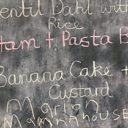 entil Dahl with
Rice
tam + Pasta B
Banana Cake +
Custard